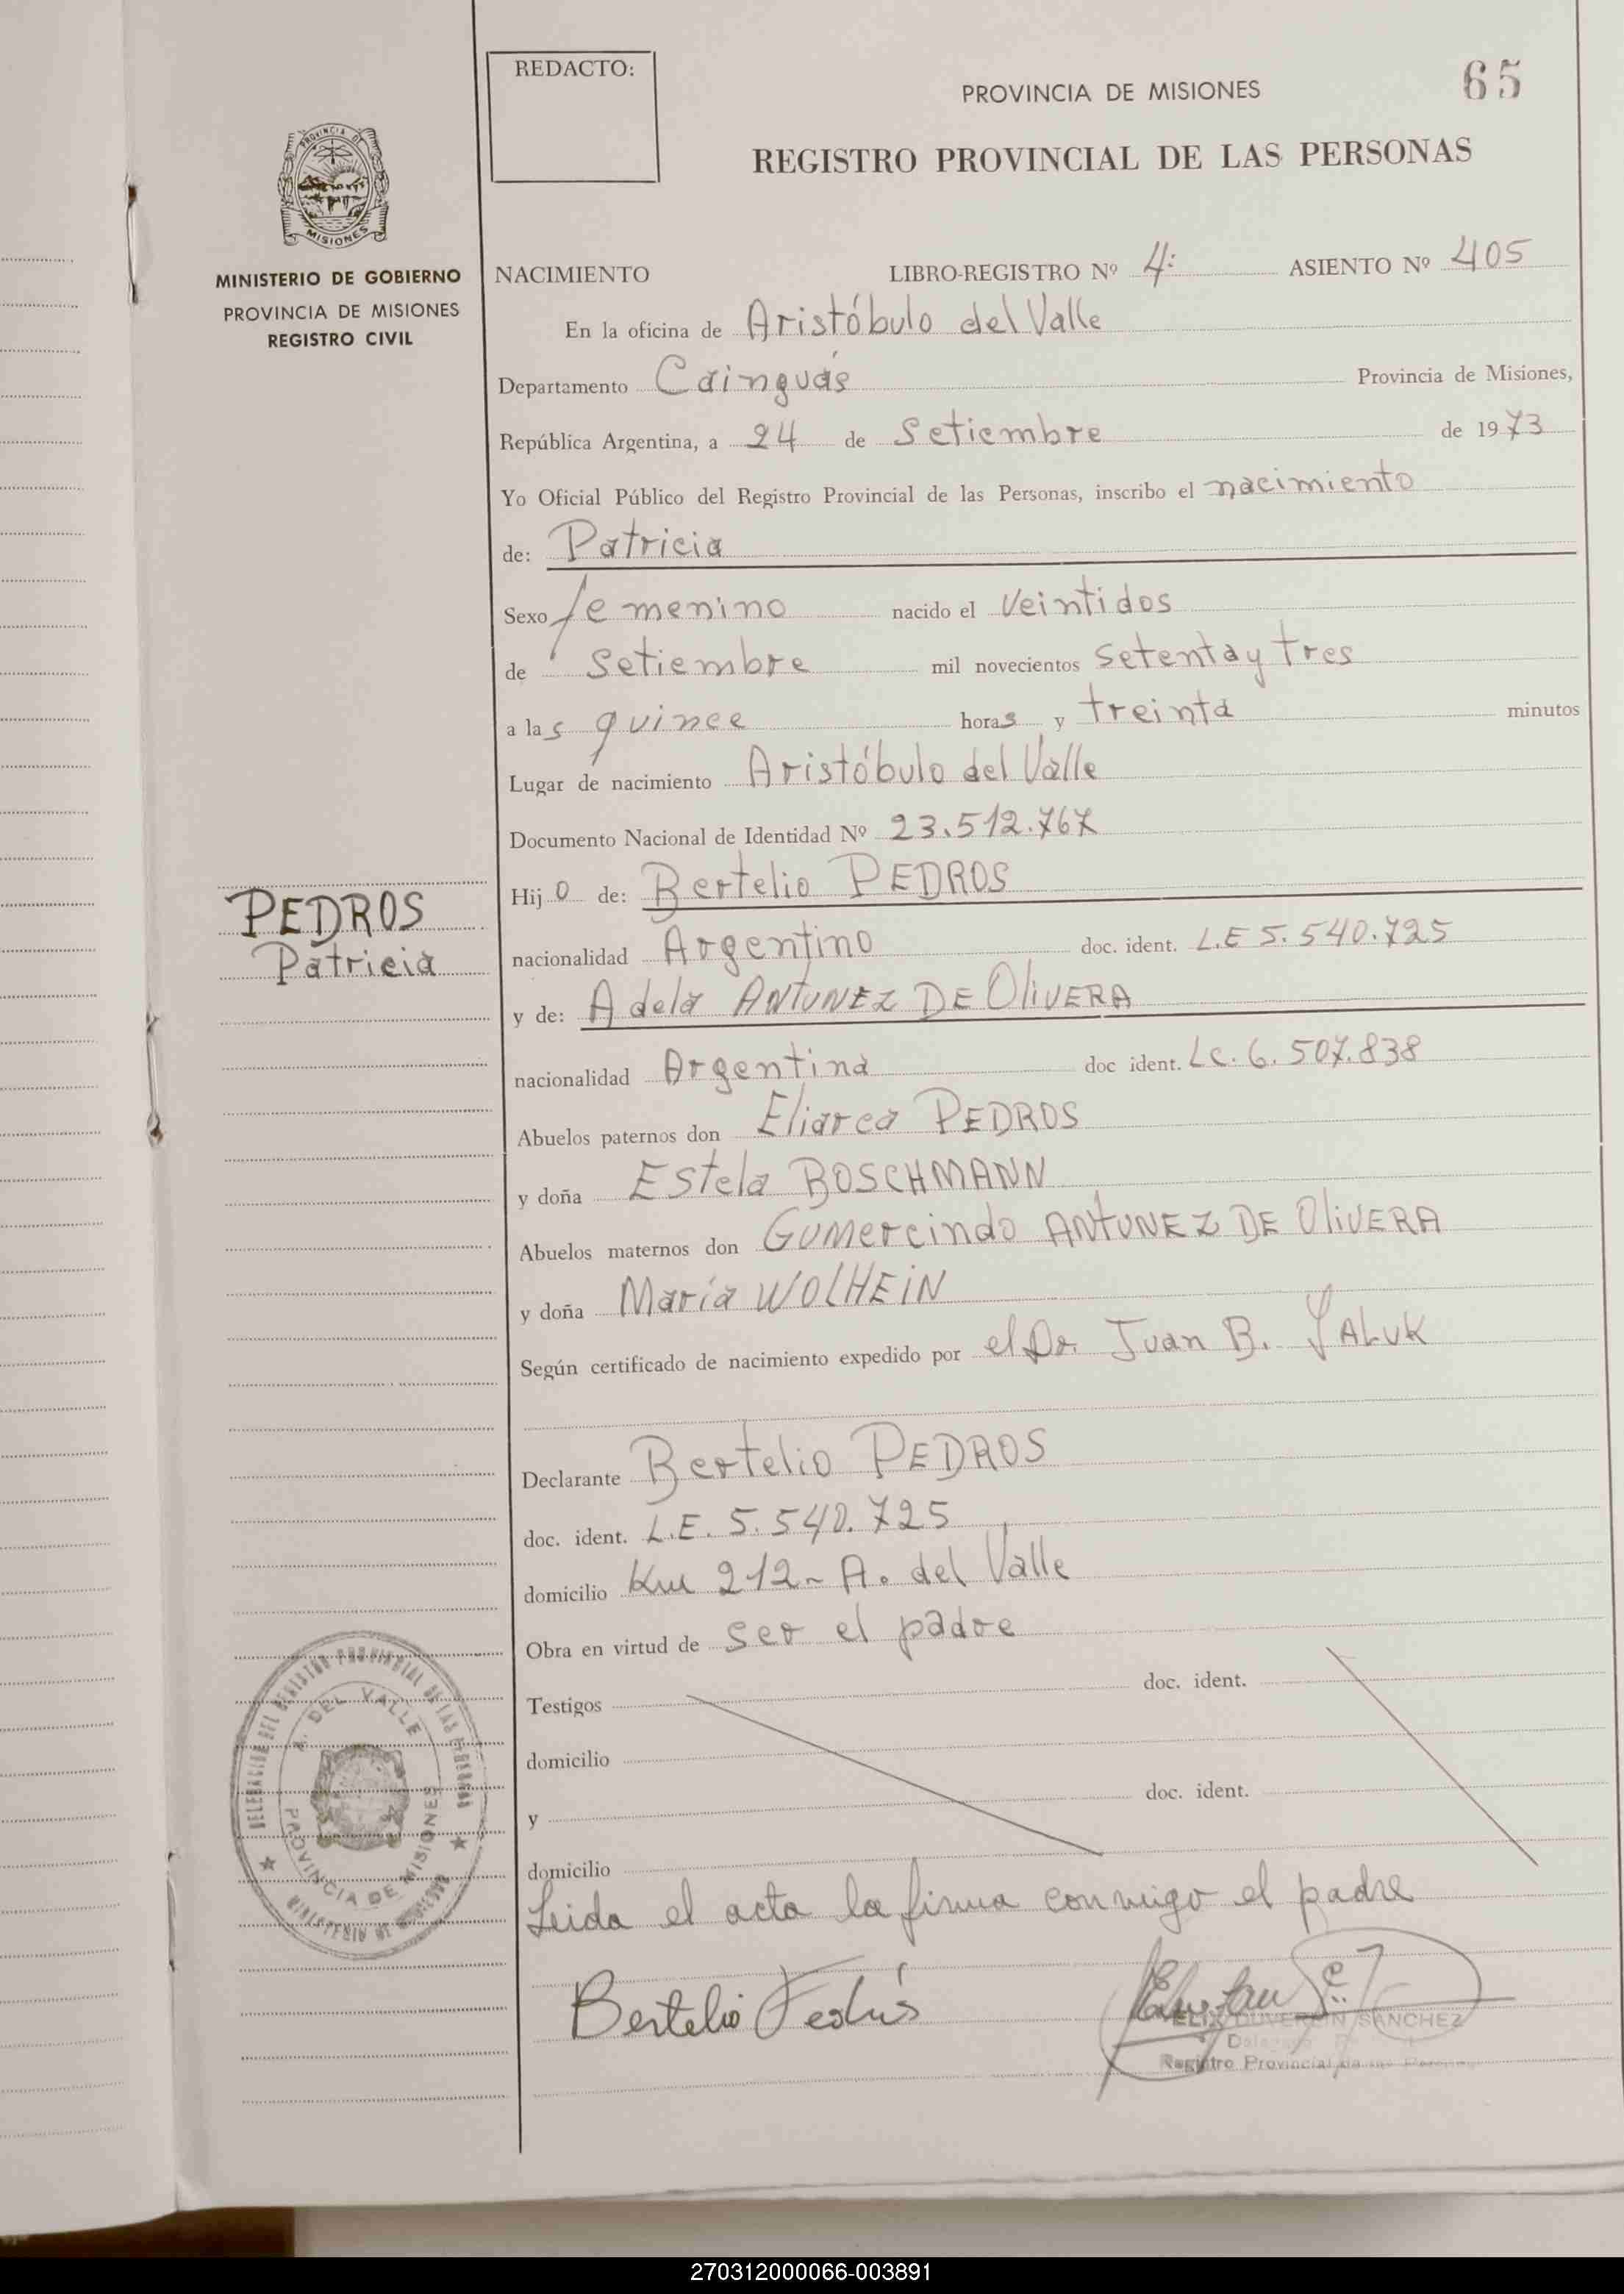 REDACTO:
PROVINCIA DE MISIONES
65
REGISTRO PROVINCIAL DE LAS PERSONAS
PROVINCIA DE MISIONES
MINISTERIO DE GOBIERNO
PROVINCIA DE MISIONES
REGISTRO CIVIL
NACIMIENTO LIBRO-REGISTRO Nº 4: ASIENTO Nº 405
En la oficina de Aristóbulo del Valle
Departamento Cainguás Provincia de Misiones,
República Argentina, a 24 de Setiembre de 1973
Yo Oficial Público del Registro Provincial de las Personas, inscribo el nacimiento
de: Patricia
Sexo femenino nacido el Veintidos
de Setiembre mil novecientos setenta y tres
a las quince horas y treinta minutos
Lugar de nacimiento Aristóbulo del Valle
Documento Nacional de Identidad Nº 23.512.767
Hijo de: Bertelio PEDROS
PEDROS
Patricia
nacionalidad Argentino doc. ident. L.E 5.540.725
y de: Adela ANTUNEZ DE OliVERA
nacionalidad Argentina doc ident. Lc. 6.507.838
Abuelos paternos don Eliarca PEDROS
y doña Estela BOSCHMANN
Abuelos maternos don Gumercindo ANTUNEZ DE OliVERA
y doña María WOLHEiN
Según certificado de nacimiento expedido por el Dr. Juan B. YALUK
Declarante Bertelio PEDROS
doc. ident. L.E. 5.540.725
domicilio Km 212- A. del Valle
Obra en virtud de ser el padre
Testigos doc. ident.
domicilio
y doc. ident.
domicilio
Leida el acta la firma conmigo el padre
DELEGACION DEL REGISTRO PROVINCIAL DE LAS PERSONAS
A. DEL VALLE
PROVINCIA DE MISIONES
MINISTERIO DE GOBIERNO
Bertelio Pedrós
FELIX DUVERGIN SANCHEZ
Registro Provincial de las Personas
270312000066-003891